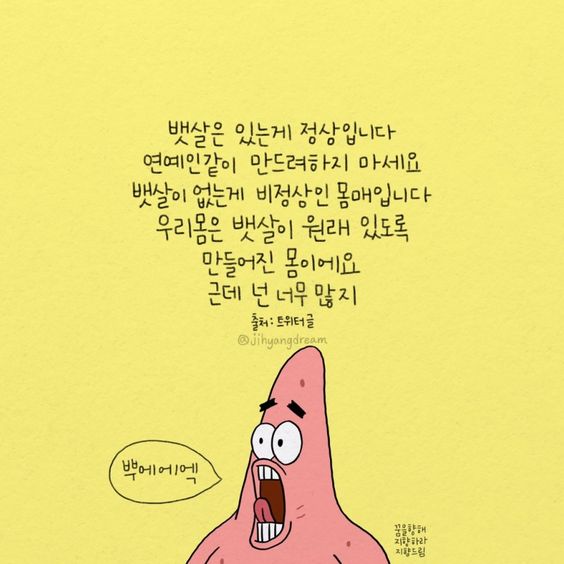 뱃살은 있는게 정상입니다
연예인같이 만드려하지 마세요
뱃살이 없는게 비정상인 몸매입니다
우리몸은 뱃살이 원래 있도록
만들어진 몸이에요
근데 넌 너무 많지
출처 : 트위터글
@jihyangdream
뿌에에엑
꿈을향해
지향하라
지향드림